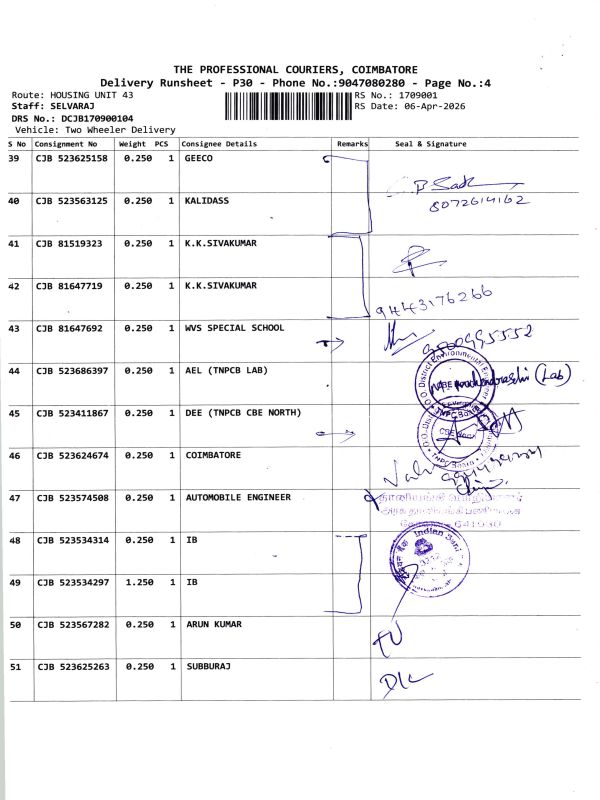 THE PROFESSIONAL COURIERS, COIMBATORE
Delivery Runsheet - P30 - Phone No.:9047080280 - Page No.:4
Route: HOUSING UNIT 43 RS No.: 1709001
Staff: SELVARAJ RS Date: 06-Apr-2026
DRS No.: DCJB170900104
Vehicle: Two Wheeler Delivery
S No Consignment No Weight PCS Consignee Details Remarks Seal & Signature
39 CJB 523625158 0.250 1 GEECO
40 CJB 523563125 0.250 1 KALIDASS
8072614162
41 CJB 81519323 0.250 1 K.K.SIVAKUMAR
42 CJB 81647719 0.250 1 K.K.SIVAKUMAR
9443176266
43 CJB 81647692 0.250 1 WVS SPECIAL SCHOOL
44 CJB 523686397 0.250 1 AEL (TNPCB LAB) (Lab)
45 CJB 523411867 0.250 1 DEE (TNPCB CBE NORTH)
46 CJB 523624674 0.250 1 COIMBATORE
47 CJB 523574508 0.250 1 AUTOMOBILE ENGINEER
641030
48 CJB 523534314 0.250 1 IB Indian Bank
49 CJB 523534297 1.250 1 IB
50 CJB 523567282 0.250 1 ARUN KUMAR
51 CJB 523625263 0.250 1 SUBBURAJ